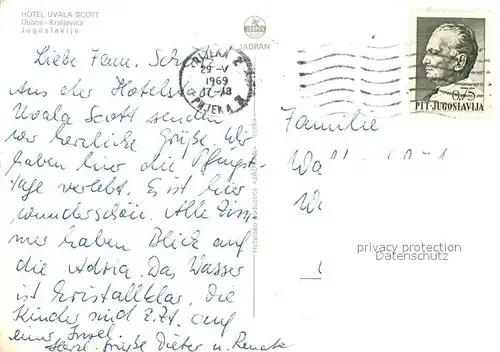 HOTEL UVALA SCOTT
Dubno - Kraljevica
Jugoslavija
JADRAN
RIJEKA 2
29-V
1969
17-18
RIJEKA 2
0,75
PTT-JUGOSLAVIJA
Liebe Fam.
Aus der Hotelstadt
Uvala Scott senden
wir herzliche Grüße. Wir
haben hier die Pfingst-
tage verlebt. Es ist hier
wunderschön. Alle Zim
mer haben Blick auf
die Adria. Das Wasser
ist kristallklar. Die
Kinder sind z.Zt. auf
einer Insel.
Herzl. Grüße Dieter u. Renate
Familie
Wa
W
privacy protection
Datenschutz